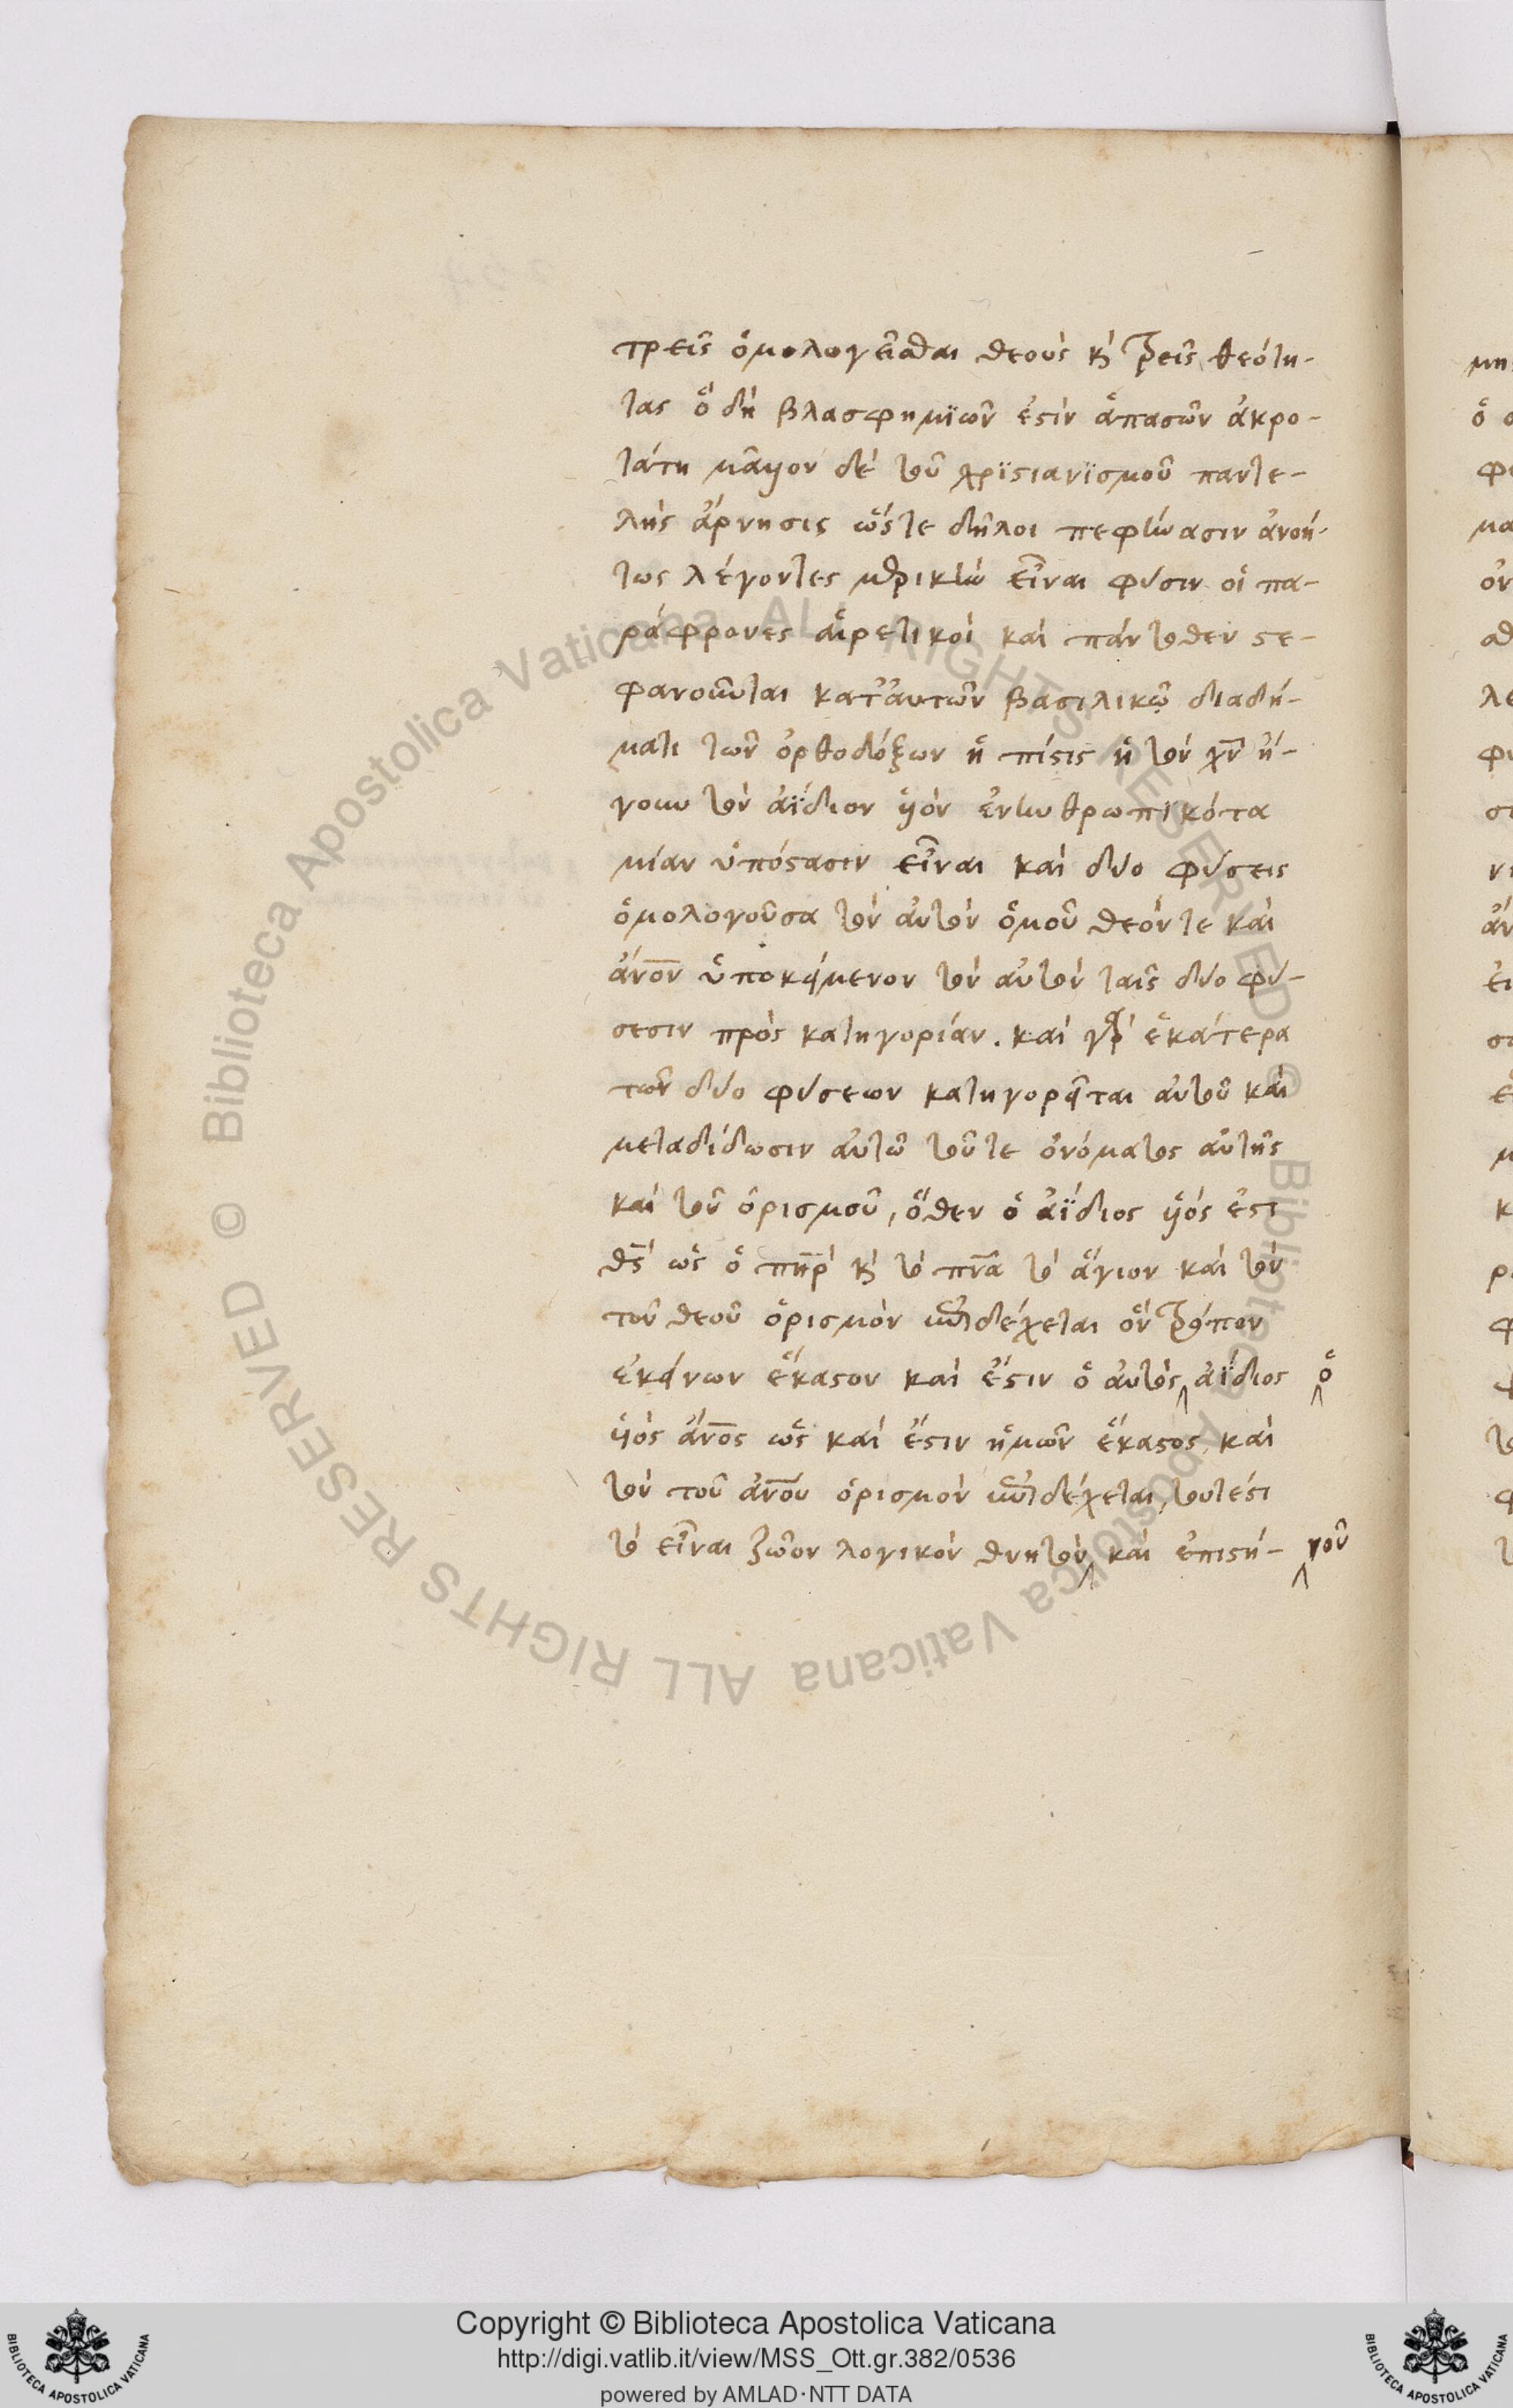 τρεῖς ὁμολογεῖσθαι θεοὺς κὴ τρεῖς θεότη-
τας ὃ δὴ βλασφημϊῶν ἐστὶν ἁπασῶν ἀκρο-
τάτη μᾶλλον δὲ τοῦ χρϊστιανϊσμοῦ παντε-
λὴς ἄρνησις ὥστε δῆλοι πεφήνασιν ἀνοή-
τως λέγοντες μερικὴν εἶναι φύσιν οἱ πα-
ράφρονες αἱρετικοὶ καὶ πάντοθεν στε-
φανοῦται κατ' αὐτῶν βασιλικῷ διαδή-
ματι τῶν ὀρθοδόξων ἡ πίστις ἡ τὸν χν ἤ-
γουν τὸν ἀΐδιον υἱὸν ἐνανθρωπικότα
μίαν ὑπόστασιν εἶναι καὶ δύο φύσεις
ὁμολογοῦσα τὸν αὐτὸν ὁμοῦ θεόν τε καὶ
ἄνον ὑποκείμενον τὸν αὐτὸν ταῖς δύο φύ-
σεσιν πρὸς κατηγορίαν. καὶ γὰρ ἑκάτερα
τῶν δύο φύσεων κατηγορεῖται αὐτοῦ καὶ
μεταδίδωσιν αὐτῷ τοῦ τε ὀνόματος αὐτῆς
καὶ τοῦ ὁρισμοῦ, ὅθεν ὁ ἀΐδιος υἱός ἐστι
θς ὡς ὁ πηρ κὴ τὸ πνα τὸ ἅγιον καὶ τὸν
τοῦ θεοῦ ὁρισμὸν ἐπιδέχεται ὃν τρόπον
ἐκείνων ἕκαστον καὶ ἔστιν ὁ αὐτὸς ἀΐδιος ὁ
υἱὸς ἄνος ὡς καὶ ἔστιν ἡμῶν ἕκαστος καὶ
τὸν τοῦ ἀνου ὁρισμὸν ἐπιδέχεται, τουτέστι
τὸ εἶναι ζῶον λογικὸν θνητὸν καὶ ἐπιστή- νοῦ
Copyright © Biblioteca Apostolica Vaticana
http://digi.vatlib.it/view/MSS_Ott.gr.382/0536
powered by AMLAD·NTT DATA